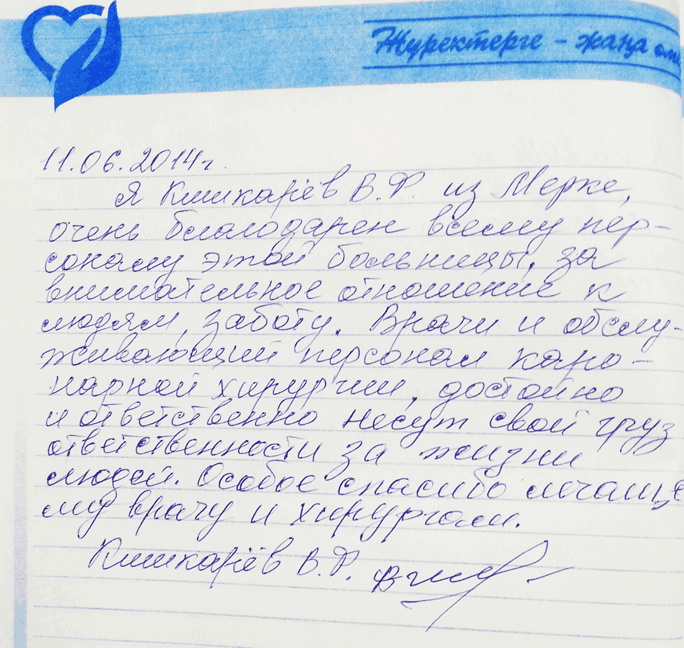 Жүректерге - жаңа
11.06.2014г.
Я Кишкарёв В.Ф. из Мерке,
очень благодарен всему пер-
соналу этой больницы, за
внимательное отношение к
людям, заботу. Врачи и обслу-
живающий персонал каро-
нарной хирургии, достойно
и ответственно несут свой груз
ответственности за жизни
людей. Особое спасибо лечаще
му врачу и хирургам.
Кишкарёв В.Ф.